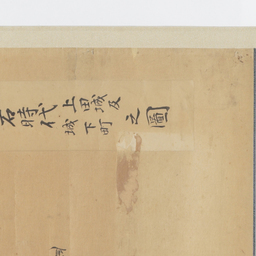 石時代上田城及
城下町之圖